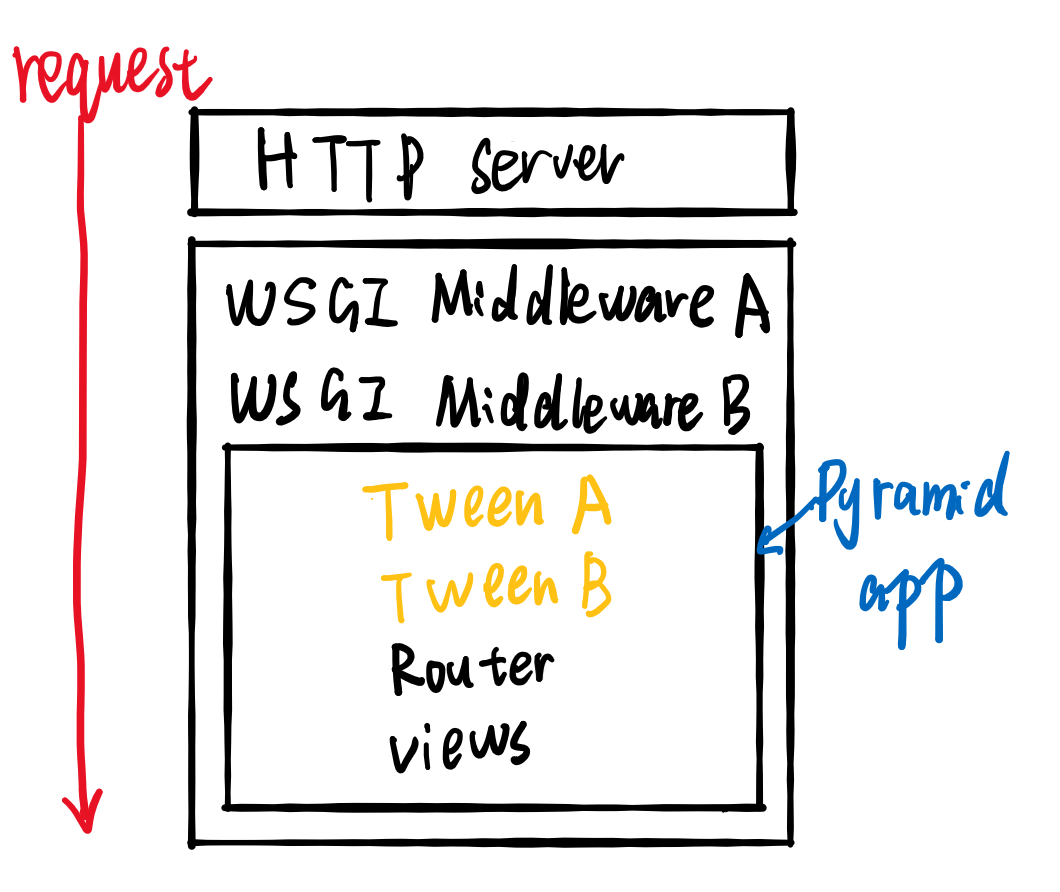 request
HTTP server
WSGI Middleware A
WSGI Middleware B
Tween A
Tween B
Router
views
Pyramid
app